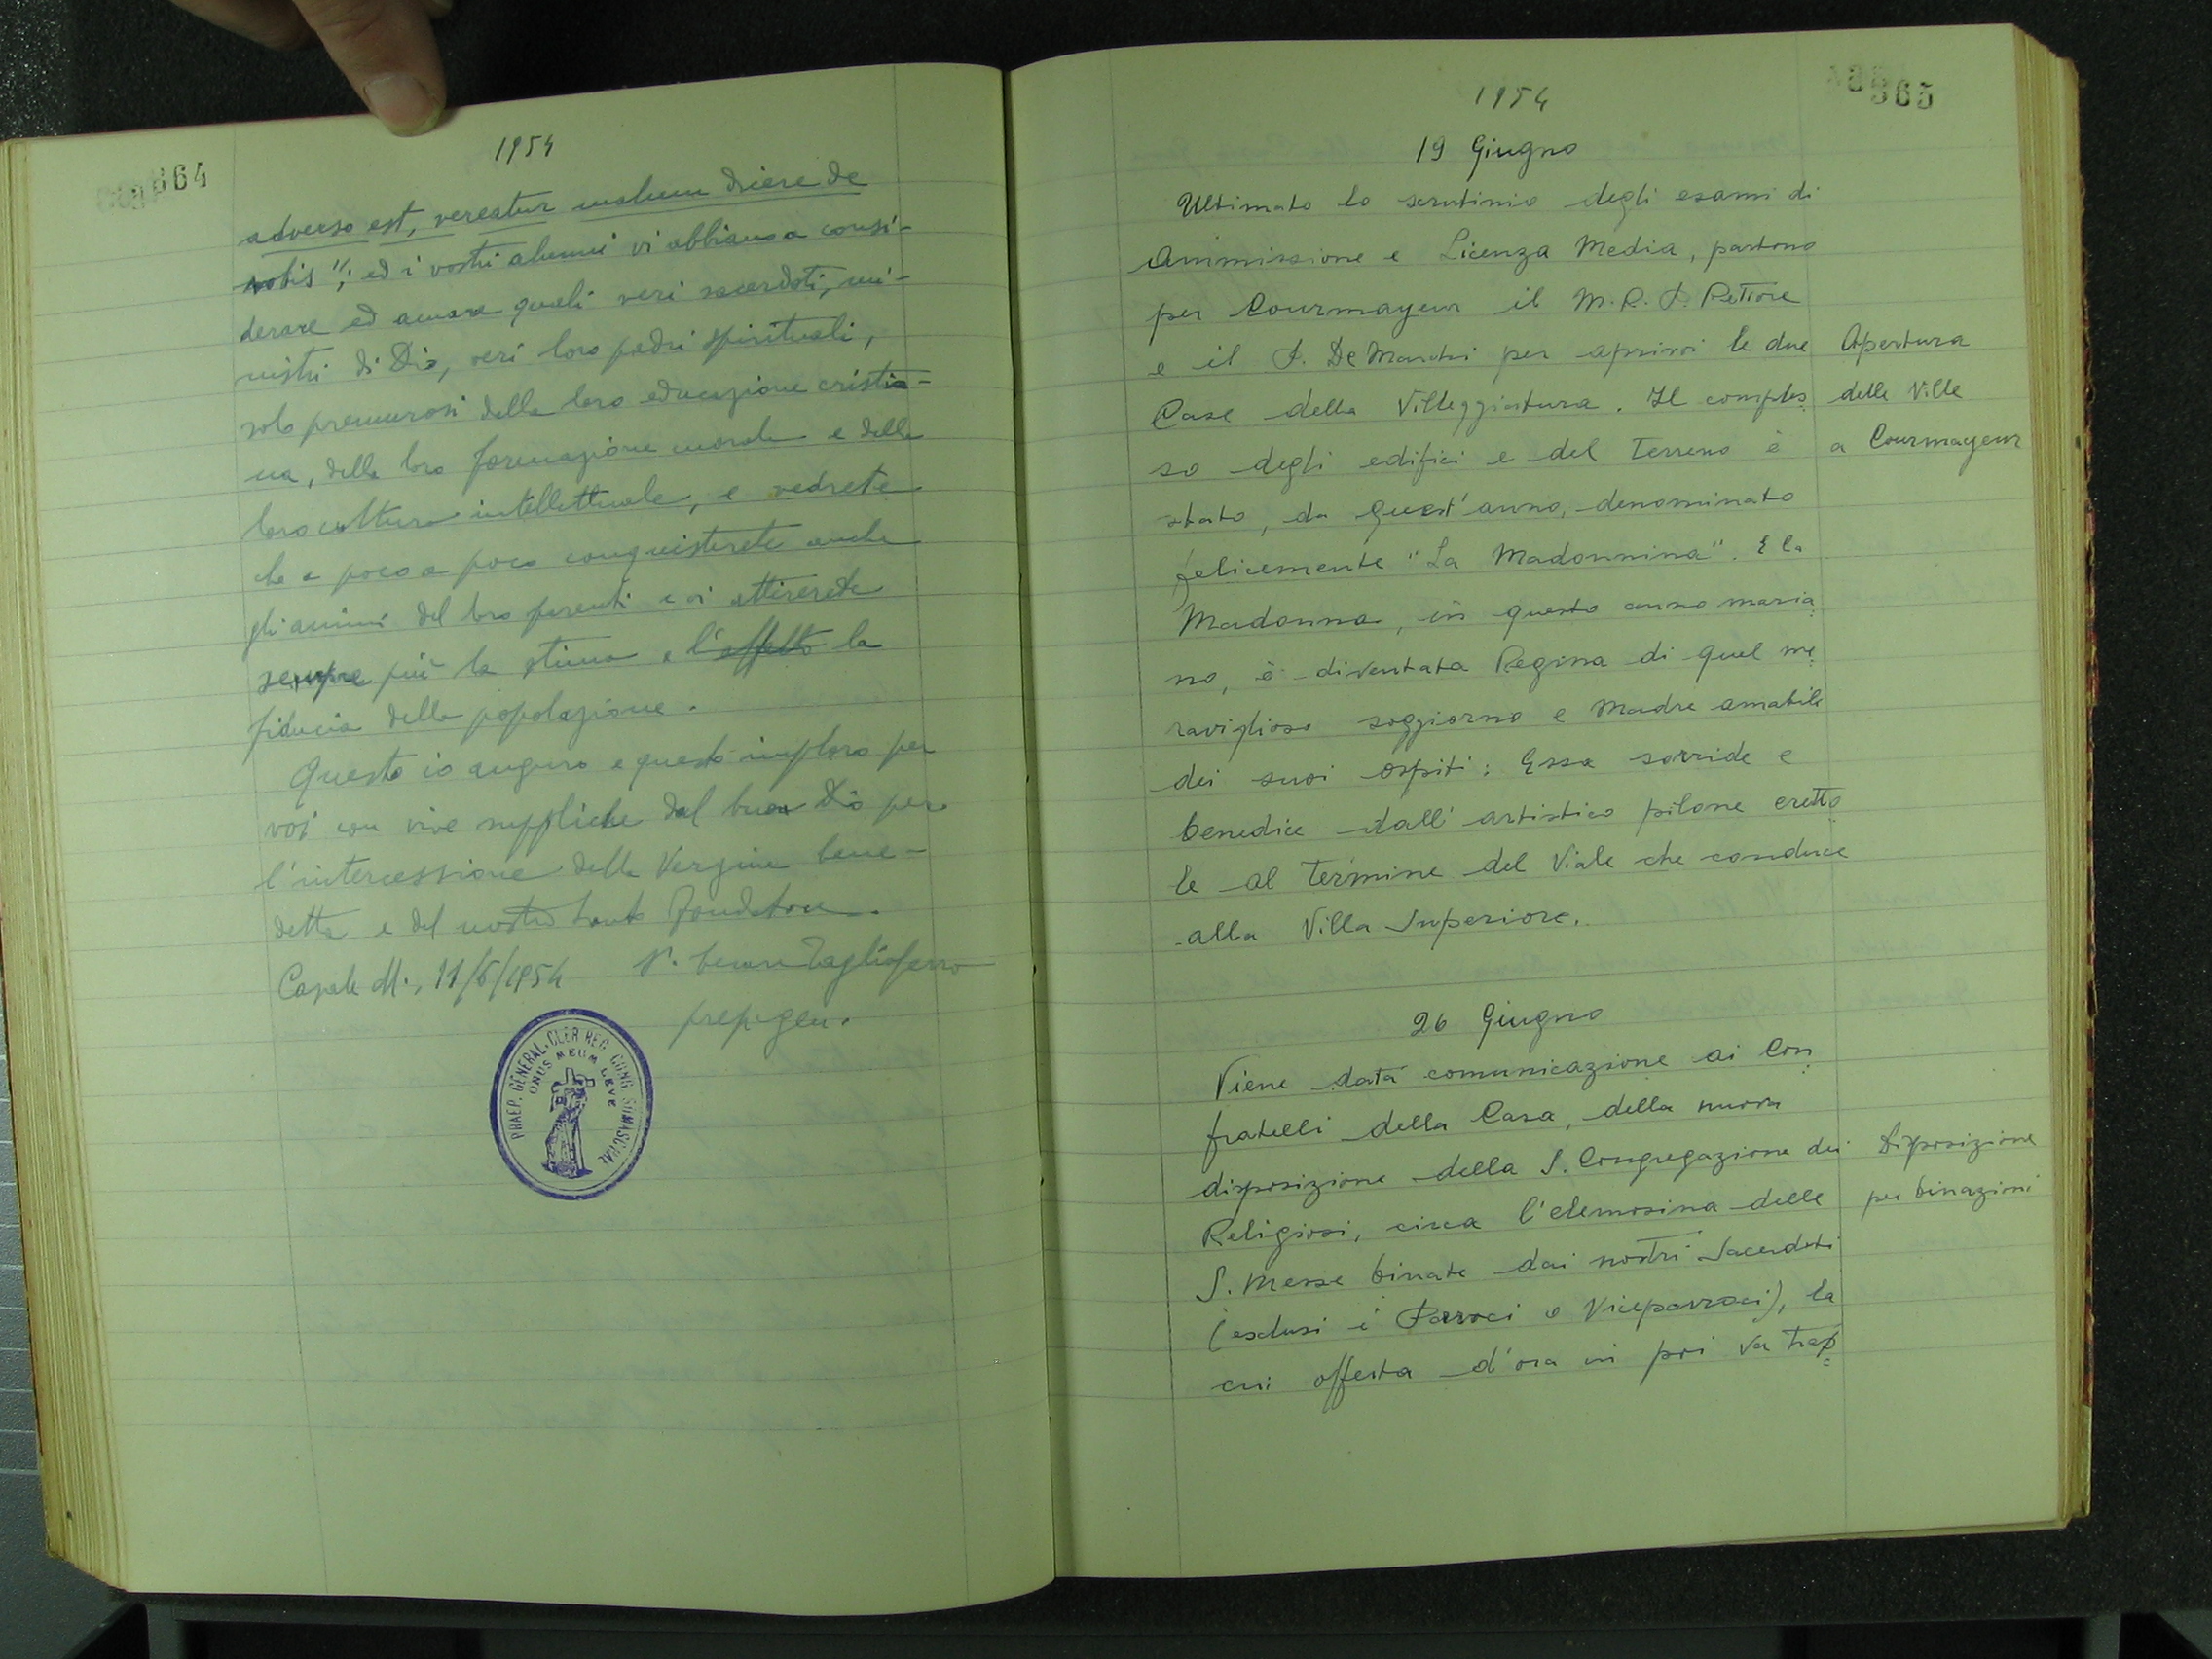 364
1954
adverso est, vereatur malum dicere de
nobis"; ed i vostri alunni vi abbiano a consi-
derare ed amare quali veri sacerdoti, mi-
nistri di Dio, veri loro padri spirituali,
solo premurosi della loro educazione cristia-
na, della loro formazione morale e della
loro cultura intellettuale, e vedrete
che a poco a poco conquisterete anche
gli animi dei loro parenti e vi attirerete
sempre più la stima e l'affetto la
fiducia della popolazione.
Questo io auguro e questo imploro per
voi con vive suppliche dal buon Dio per
l'intercessione della Vergine bene-
detta e del nostro Santo Fondatore.
Casale M., 11/6/1954 P. Cesare Tagliaferro
prep. gen.
PRAEP. GENERAL. CLER. REG. CONG. SOMASCHAE
ONUS MEUM LEVE
365
1954
19 Giugno
Ultimato lo scrutinio degli esami di
Ammissione e Licenza Media, partono
per Courmayeur il M.R.P. Rettore
e il P. De Marchi per aprirvi le due
Apertura
Case della Villeggiatura. Il comples
delle Ville
so degli edifici e del terreno è
a Courmayeur
stato, da quest'anno, denominato
felicemente "La Madonnina". E la
Madonna, in questo anno maria
no, è diventata Regina di quel me
raviglioso soggiorno e Madre amabile
dei suoi ospiti: Essa sorride e
benedice dall'artistico pilone eretto
le al termine del Viale che conduce
alla Villa Superiore.
26 Giugno
Viene data comunicazione ai Con
fratelli della Casa, della nuova
disposizione della S. Congregazione dei
Disposizione
Religiosi, circa l'elemosina delle
per binazioni
S. Messe binate dai nostri Sacerdoti
(esclusi i Parroci o Viceparroci), la
cui offerta d'ora in poi va trap